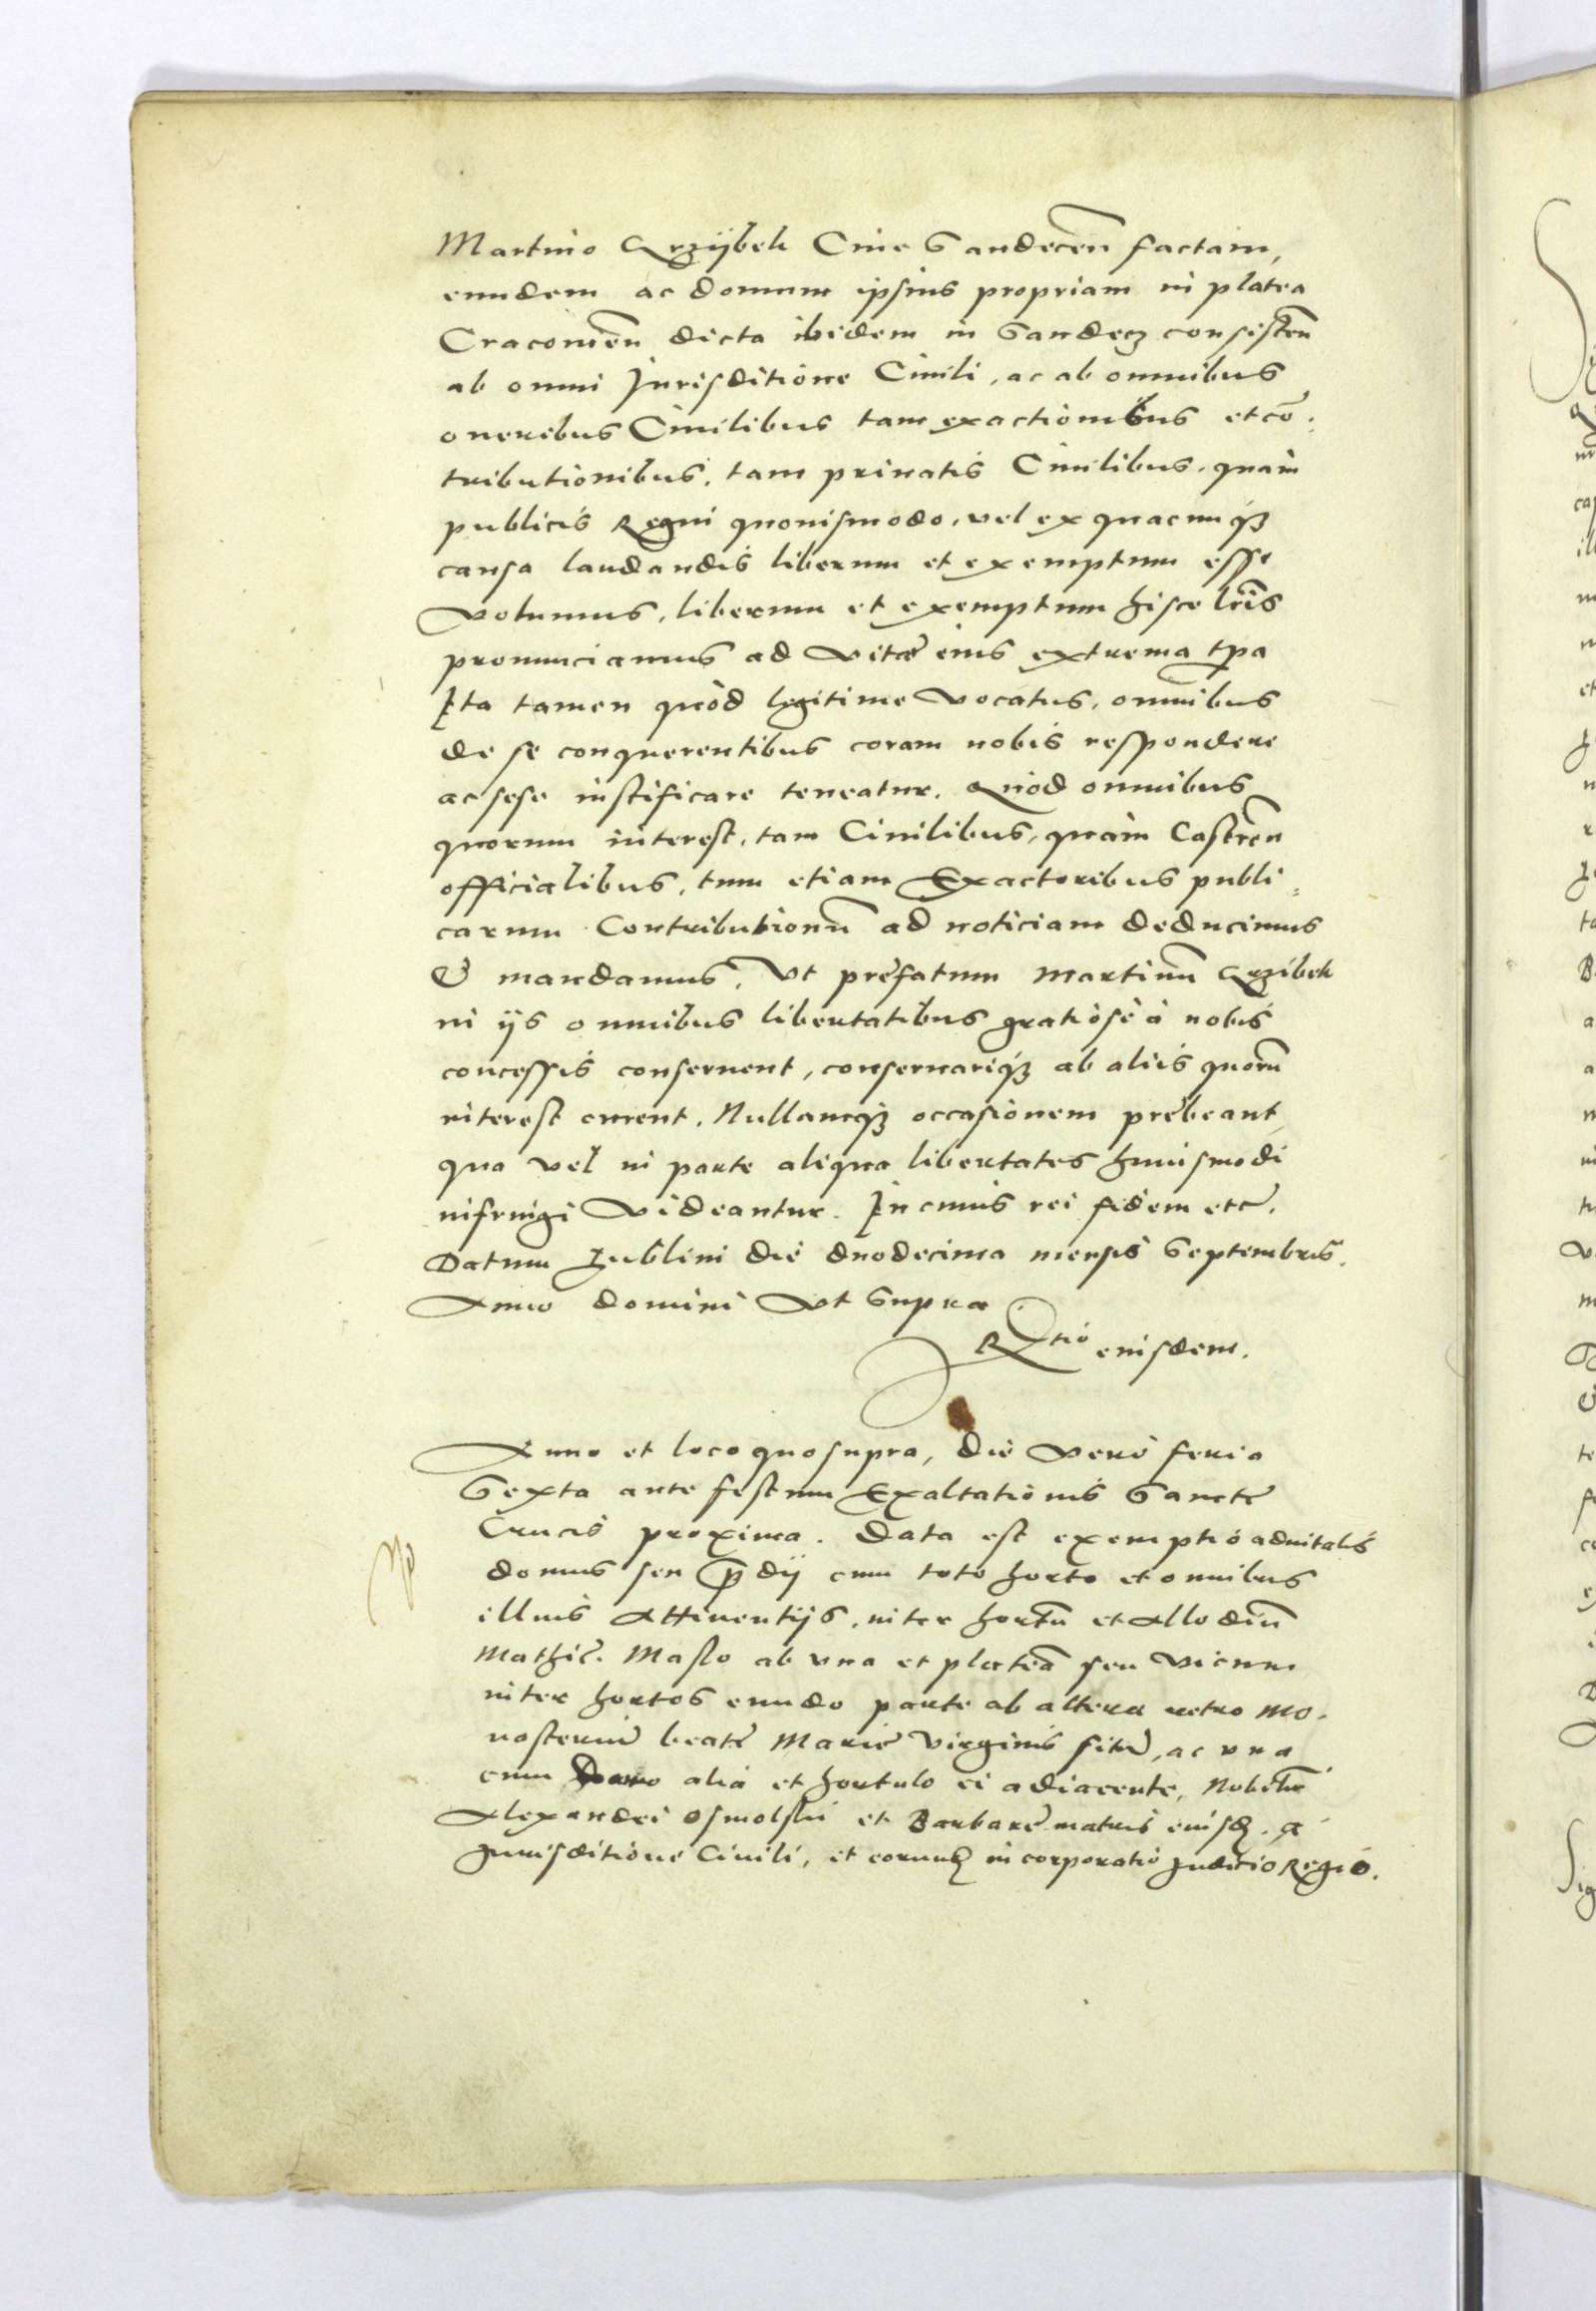 Martino Grzÿbek Ciui Sandecen̄ factam,
eundem ac domum ipsius propriam in platea
Cracouien̄ dicta ibidem in Sandecz consisten̄
ab omni Jurisditione Ciuili, ac ab omnibus
oneribus Ciuilibus tam exactionibus et co͞-
tributionibus, tam priuatis Ciuilibus, quàm
publicis Regni quouismodo, vel ex quacunqȝ
causa laudandis liberum et exemptum esse
volumus, liberum et exemptum hisce lr̄is
pronunciamus ad vitæ eius extrema tp̄a
Ita tamen quòd legitime vocatus, omnibus
de se conquerentibus coram nobis respondere
ac sese iustificare teneatur. Quod omnibus
quorum interest, tam Ciuilibus, quàm Castren̄
officialibus, tum etiam Exactoribus publi-
carum Contributionū ad noticiam deducimus
& mandamus, Vt prefatum Martinū Grzibek
in ijs omnibus libertatibus gratiosè à nobis
concessis conseruent, conseruariqȝ ab aliis quorū
interest curent. Nullamqȝ occasionem prębeant,
qua vel in parte aliqua libertates huiusmodi
infringi videantur. In cuius rei fidem etc̄.
Datum Lublini die duodecima mensis Septembris.
Anno domini vt supra
Rtio eiusdem.
Anno et loco quo supra, die vero feria
Sexta ante festum Exaltationis Sanctę
Crucis proxima. Data est exemptio aduitalis
domus seu p̄dij cum toto horto et omnibus
illius Attinentijs, inter hortū et Allodiū
Mathię. Maslo ab vna et plateā seu vicum
inter hortos eundo parte ab altera retro Mo-
nasteriū beatę Marię Virginis sitę, ac vna
cum domo alia et hortulo ei adiacente, Nobiliū
Alexandri Osmolski et Barbarę matris eiusd. a
Jurisditione Ciuili, et eorund incorporatio Juditio Regio.